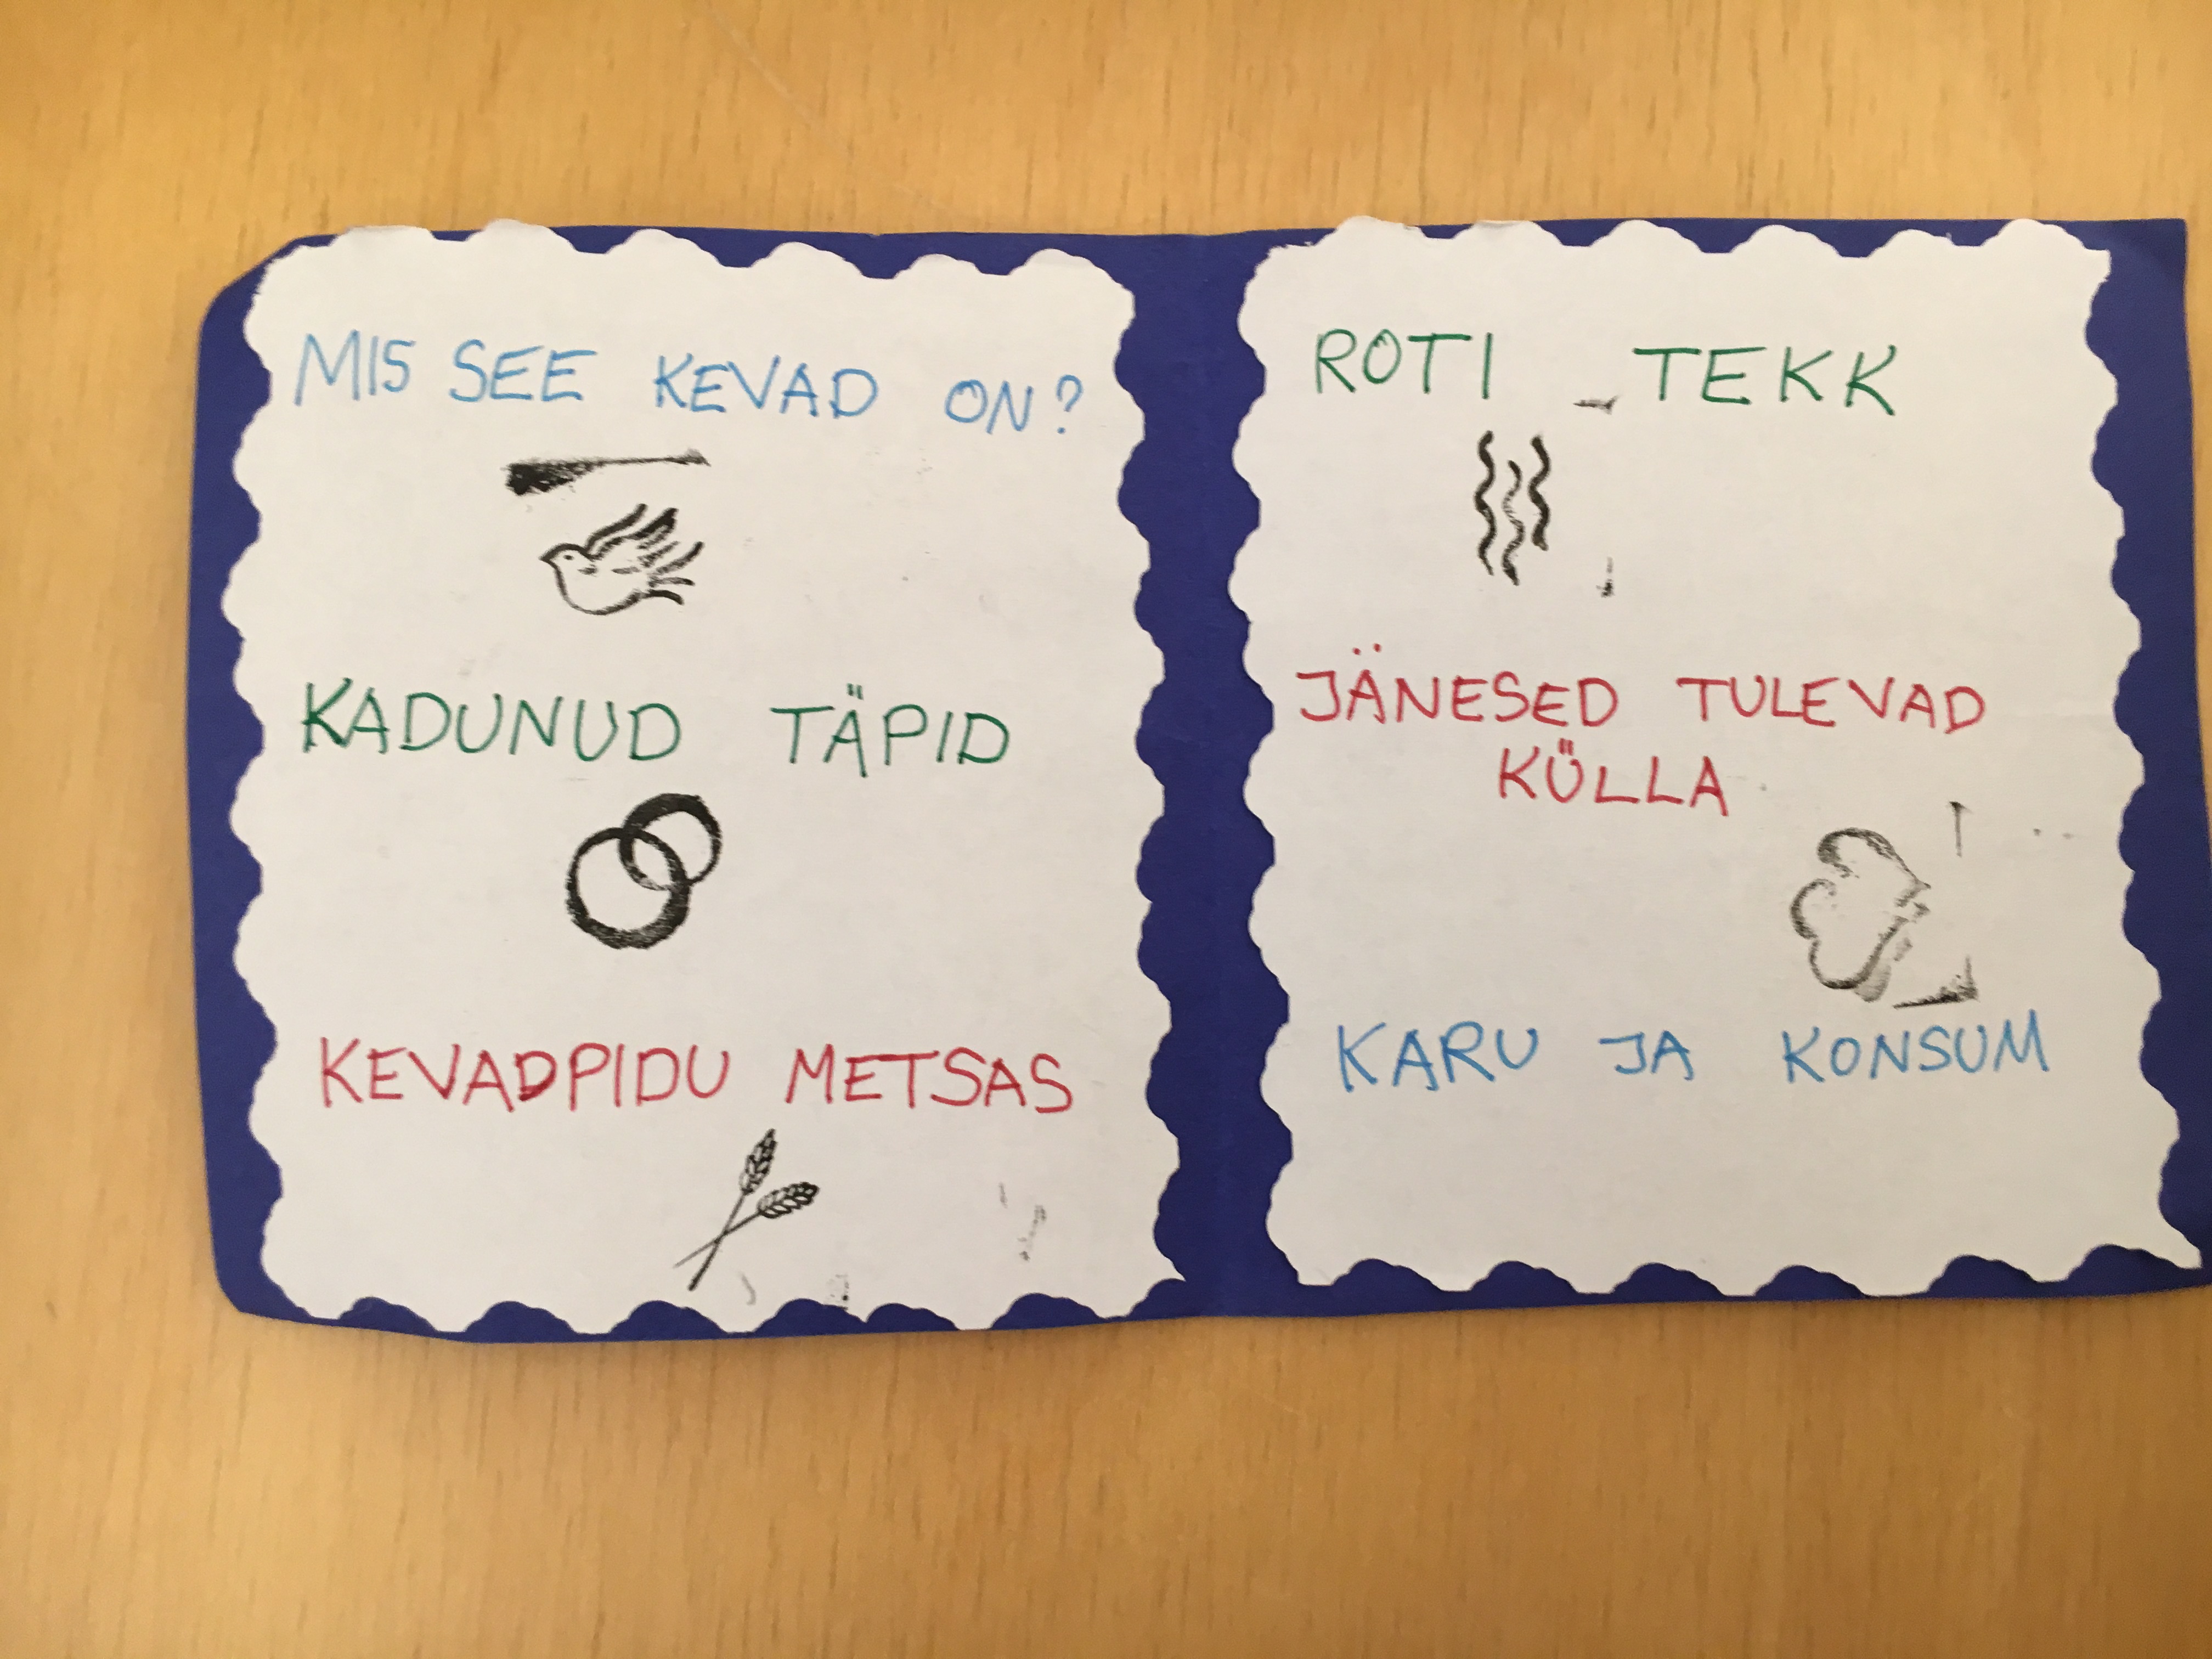 MIS SEE KEVAD ON?
KADUNUD TÄPID
KEVADPIDU METSAS
ROTI TEKK
JÄNESED TULEVAD
KÜLLA
KARU JA KONSUM